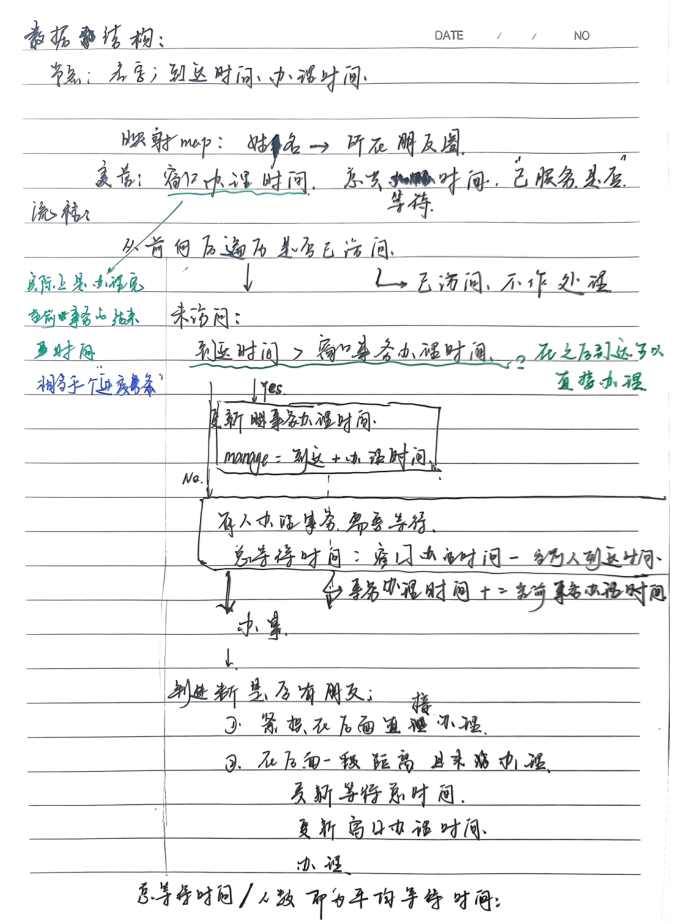 数据结构：
DATE / / NO
节点：名字；到达时间、办理时间、
映射map：姓名 → 所在朋友圈
变量：窗口办理时间、总共等待时间、"已服务是否"
流程：
从前向后遍历是否已访问、
已访问、不作处理
实际上是办理完
当前事务的结束
时间
相当于一个"进度条"
未访问：
到达时间 > 窗口事务办理时间、
在之后到达可以
直接办理
Yes
更新 事务办理时间
manage = 到达 + 办理时间、
No.
有人办理事务、需要等待、
总等待时间：窗口办理时间 - 当前人到达时间、
事务办理时间 += 当前事务办理时间
办事
判断是否有朋友：
①、紧接在后面 直接办理、
②、在后面一段距离 且未 办理
更新等待总时间、
更新窗口办理时间、
办理
总等待时间 / 人数 即为平均等待时间：